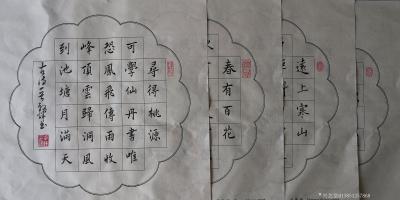 尋得桃源
可學仙丹書唯
恐鳳飛傳雨收
峰頂雲歸洞風
到池塘月滿天
古詩一首
春有百花
遠上寒山